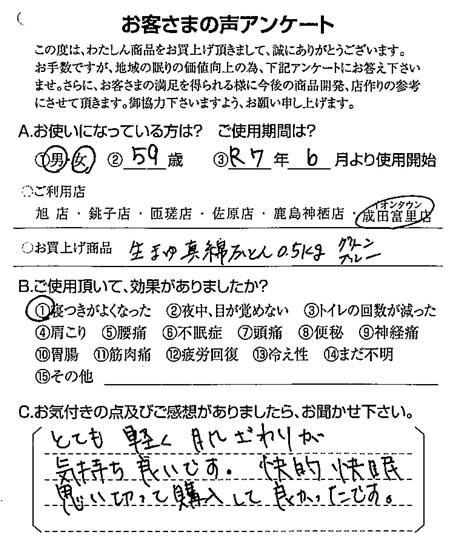 お客さまの声アンケート
この度は、わたしん商品をお買上げ頂きまして、誠にありがとうございます。
お手数ですが、地域の眠りの価値向上の為、下記アンケートにお答え下さい
ませ。さらに、お客さまの満足を得られる様に今後の商品開発、店作りの参考
にさせて頂きます。御協力下さいますよう、お願い申し上げます。
A.お使いになっている方は? ご使用期間は?
①男・女 ②59歳 ③R7年6月より使用開始
○ご利用店
旭店・銚子店・匝瑳店・佐原店・鹿島神栖店・イオンタウン成田富里店
○お買上げ商品 生まゆ真綿ふとん0.5kg グリーン ブルー
B.ご使用頂いて、効果がありましたか?
①寝つきがよくなった ②夜中、目が覚めない ③トイレの回数が減った
④肩こり ⑤腰痛 ⑥不眠症 ⑦頭痛 ⑧便秘 ⑨神経痛
⑩胃腸 ⑪筋肉痛 ⑫疲労回復 ⑬冷え性 ⑭まだ不明
⑮その他
C.お気付きの点及びご感想がありましたら、お聞かせ下さい。
とても軽く肌ざわりが
気持ち良いです。快的快眠
思い切って購入して良かったです。